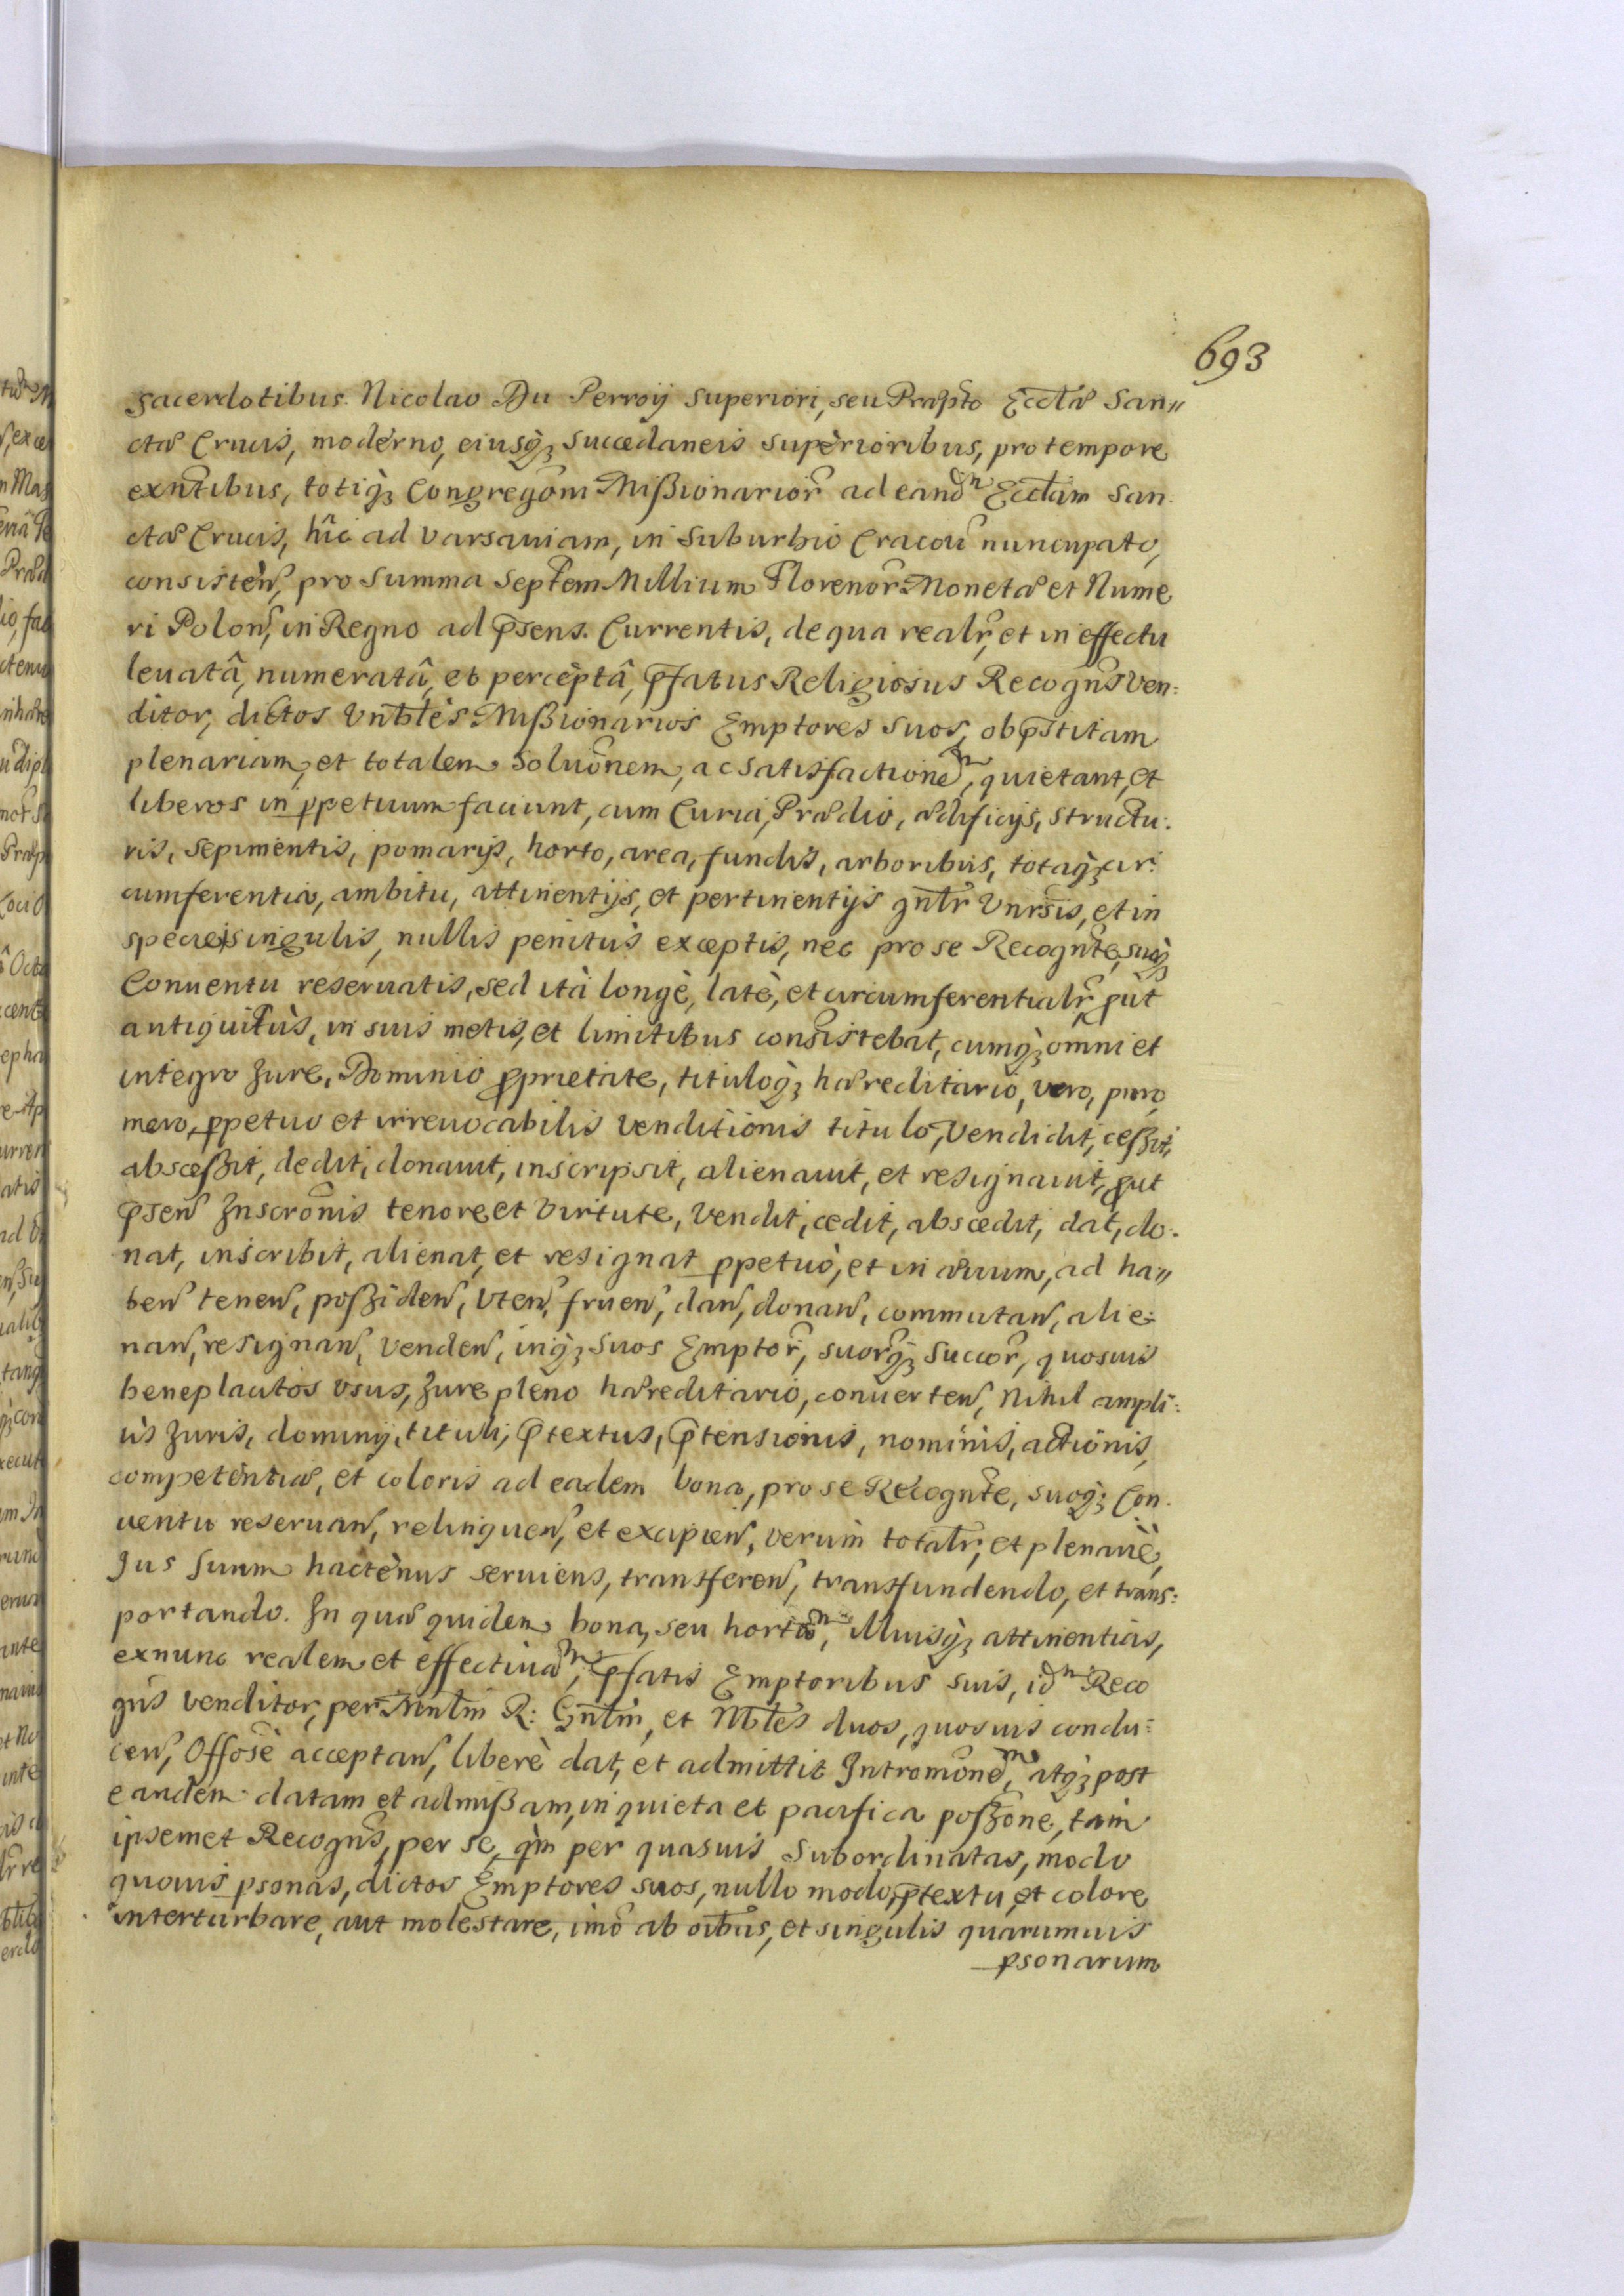 693
Sacerdotibus Nicolao Du Perroÿ Superiori, seu Præpto Ecctæ San〃
ctæ Crucis, moderno, eiusq̃ȝ succedaneis superioribus, pro tempore
exñtibus, totiq̃ȝ Congregõni Mißionarior̃ ad eand̃m Ecctãm San.
ctæ Crucis, hîc ad Varsauiam, in Suburbio Cracoũ nuncupato,
consisteñ, pro Summa Septem Millium Florenor̃ Monetæ et Nume
ri Poloñ, in Regno ad p̃sens Currentis, de qua realr̃, et in effectu
leuatâ, numeratâ, et perceptâ, p̃fatus Religiosus Recogñs Ven:
ditor, dictos Vnb̃les Mißionarios Emptores suos, ob p̃stitam
plenariam, et totalem Soluõnem, ac satisfactionem̃, quietant, et
liberos in ꝑpetuum faciunt, cum Curia, Prædio, ædificijs, structu:
ris, sepimentis, pomarijs, horto, area, fundis, arboribus, totaq̃ȝ cir:
cumferentia, ambitu, attinentijs, et pertinentijs gñlr̃ Vnirs̃is, et in
specie singulis, nullis penitùs exceptis, nec pro se Recogñte, suoq̃ȝ
Conuentu reseruatis, sed ità longè, latè, et circumferentialr̃, ꝓut
antiquitùs, in suis metis, et limitibus consistebat, cumq̃ȝ omni et
integro Jure, Dominio ꝓprietate, tituloq̃ȝ hæreditario, vero, puro,
mero, ꝑpetuo et irreuocabilis venditionis titulo, Vendidit, ceßit,
absceßit, dedit, donauit, inscripsit, alienauit, et resignauit, ꝓut
p̃señ Inscrõnis tenore et Virtute, Vendit, cedit, abscedit, dat, do.
nat, inscribit, alienat, et resignat ꝑpetuò, et in æuum, ad ha〃
beñ teneñ, poßideñ, Vteñ, frueñ, dañ, donañ, commutañ, alie:
nañ, resignañ, Vendeñ, inq̃ȝ suos Emptor̃, suorq̃ȝ Succor̃, quosuis
beneplacitos Vsus, Jure pleno hæreditario, conuerteñ, Nihil ampli:
ùs Juris, dominij, tituli, p̃textus, p̃tensionis, nominis, actionis,
competentiæ, et coloris ad eadem bona, pro se Recogñte, suoq̃ȝ Con.
uentu reseruañ, relinqueñ, et excipieñ, verùm totalr̃, et plenariè,
Jus Suum hactenus seruiens, transfereñ, transfundendo, et trans:
portando. In quæ quidem bona, seu hortum̃, Illiusq̃ȝ attinentias,
exnunc realem et effectiuam̃, p̃fatis Emptoribus suis, id̃m Reco
gñs Venditor, per Mñlm R: Gñlm, et Nb̃les duos, quosuis condu:
ceñ, Offosè acceptañ, liberè dat, et admittit Intromõnem̃, atq̃ȝ post
eandem datam et admißam, in quieta et pacifica poßõne, tàm
ipsemet Recogñs, per se, q̃m per quasuis Subordinatas, modo
quouis ꝑsonas, dictos Emptores suos, nullo modo, p̃textu, et colore
interturbare, aut molestare, imò ab oĩbus, et singulis quarumuis
ꝑsonarum